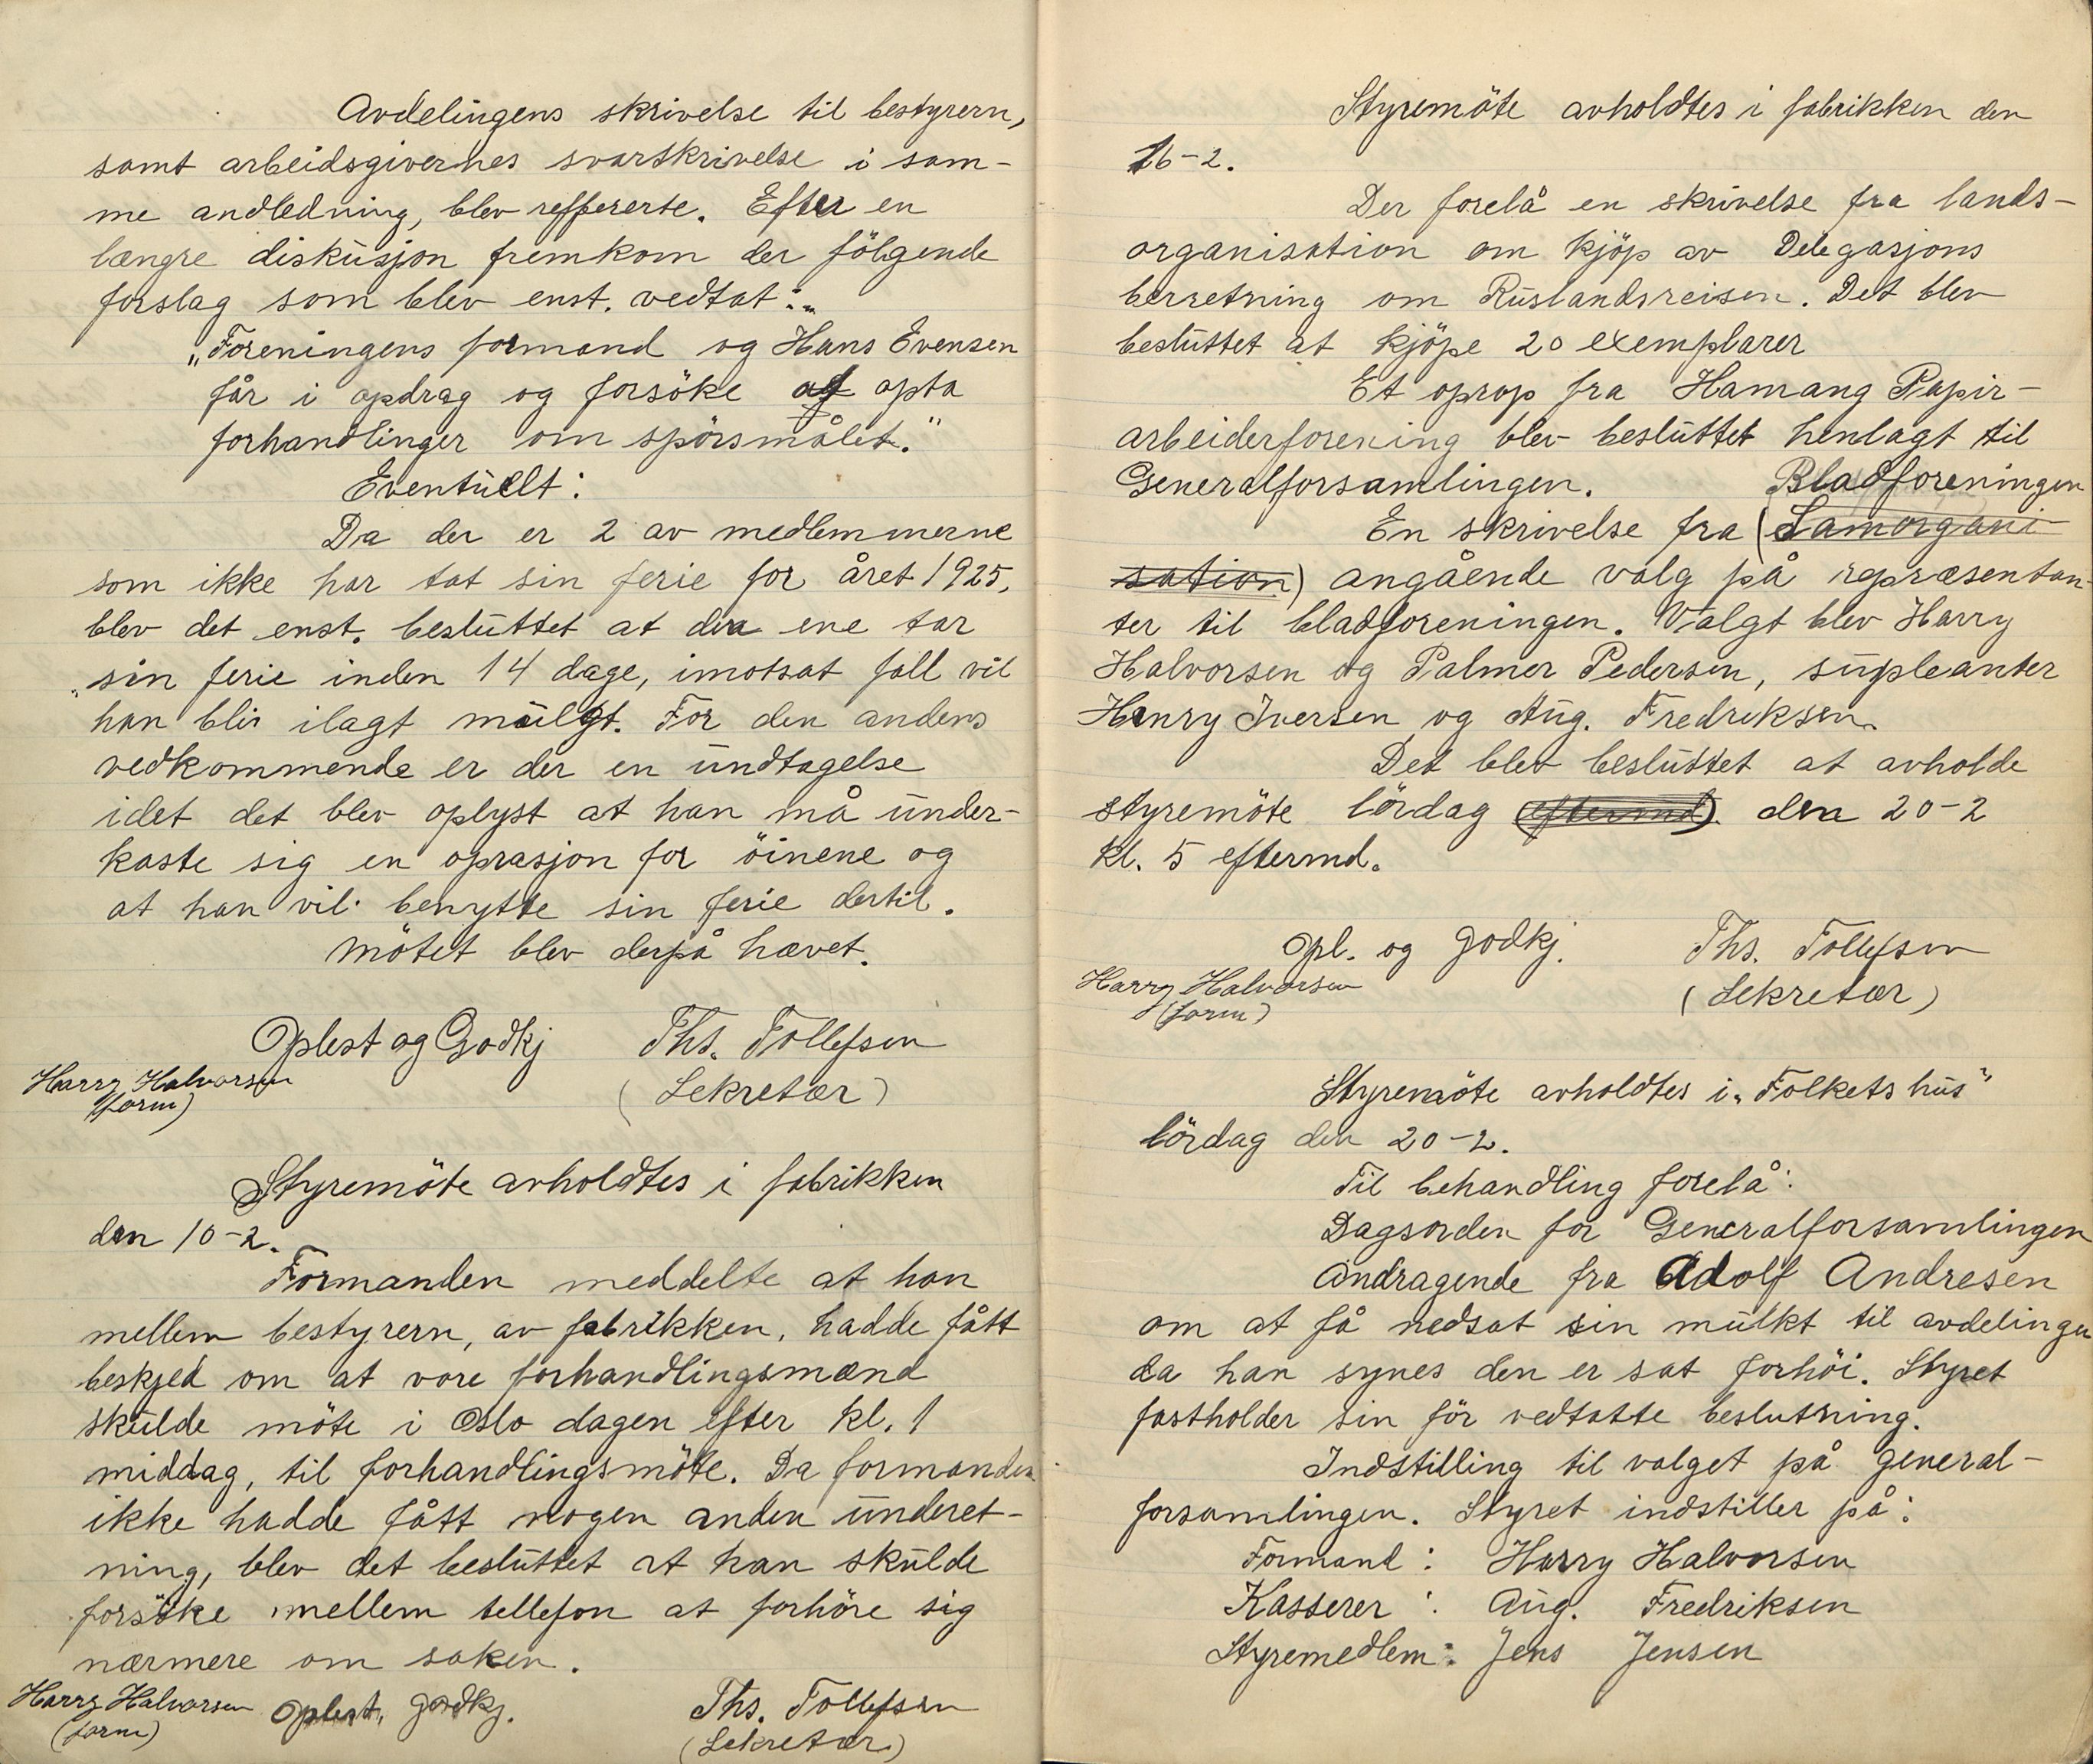 Avdelingens skrivelse til bestyrern,
samt arbeidsgivernes svarskrivelse i sam-
me andledning, blev reffererte. Efter en
længre diskusjon fremkom der følgende
forslag som blev enst. vedtat:„
„Foreningens formand og Hans Evensen
får i opdrag og forsöke at opta
forhandlinger om spörsmålet."
Eventuellt:
Da der er 2 av medlemmerne
som ikke har tat sin ferie for året 1925,
blev det enst. besluttet at den ene tar
sin ferie inden 14 dage, imotsat fall vil
han bliv ilagt mulgt. For den andens
vedkommende er der en undtagelse
idet det blev oplyst at han må under-
kaste sig en oprasjon for öinene og
at han vil benytte sin ferie dertil.
Mötet blev derpå hævet.
Oplest og Godkj Ths. Tollefsen
Harry Halvorsen
(form) (Sekretær)
Styremöte avholdtes i fabrikken
den 10-2.
Formanden meddelte at han
mellem bestyrern, av fabrikken, hadde fått
beskjed om at vore forhandlingsmænd
skulde möte i Oslo dagen efter kl. 1
middag, til forhandlingsmöte. Da formanden
ikke hadde fått nogen anden underet-
ning, blev det besluttet at han skulde
forsöke mellem tellefon at forhöre sig
nærmere om saken.
Harry Halvorsen Oplest, godkj. Ths. Tollefsen
(form) (Sekretær)
Styremöte avholdtes i fabrikken den
16-2.
Der forelå en skrivelse fra lands-
organisation om kjöp av Delegasjons
berretning om Ruslandsreisen. Det blev
besluttet at kjöpe 20 exemplarer
Et oprop fra Hamang Papir-
arbeiderforening blev besluttet henlagt til
Generalforsamlingen. Bladforeningen
En skrivelse fra (Samorgani
sation) angående valg på repræsentan-
ter til bladforeningen. Valgt blev Harry
Halvorsen og Palmer Pedersen, supleanter
Henry Iversen og Aug. Fredriksen.
Det blev besluttet at avholde
styremöte lördag (eftermd). den 20-2
kl. 5 eftermd.
Opl. og godkj. Ths. Tollefsen
Harry Halvorsen (Sekretær)
(form)
Styremöte avholdtes i „Folkets hus"
lördag den 20-2.
Til behandling forelå:
Dagsorden for Generalforsamlingen
Andragende fra Adolf Andresen
om at få nedsat sin mulkt til avdelingen
da han synes den er sat forhöi. Styret
fastholder sin för vedtatte beslutning.
Indstilling til valget på general-
forsamlingen. Styret indstiller på:
Formand: Harry Halvorsen
Kasserer: Aug. Fredriksen
Styremedlem: Jens Jensen